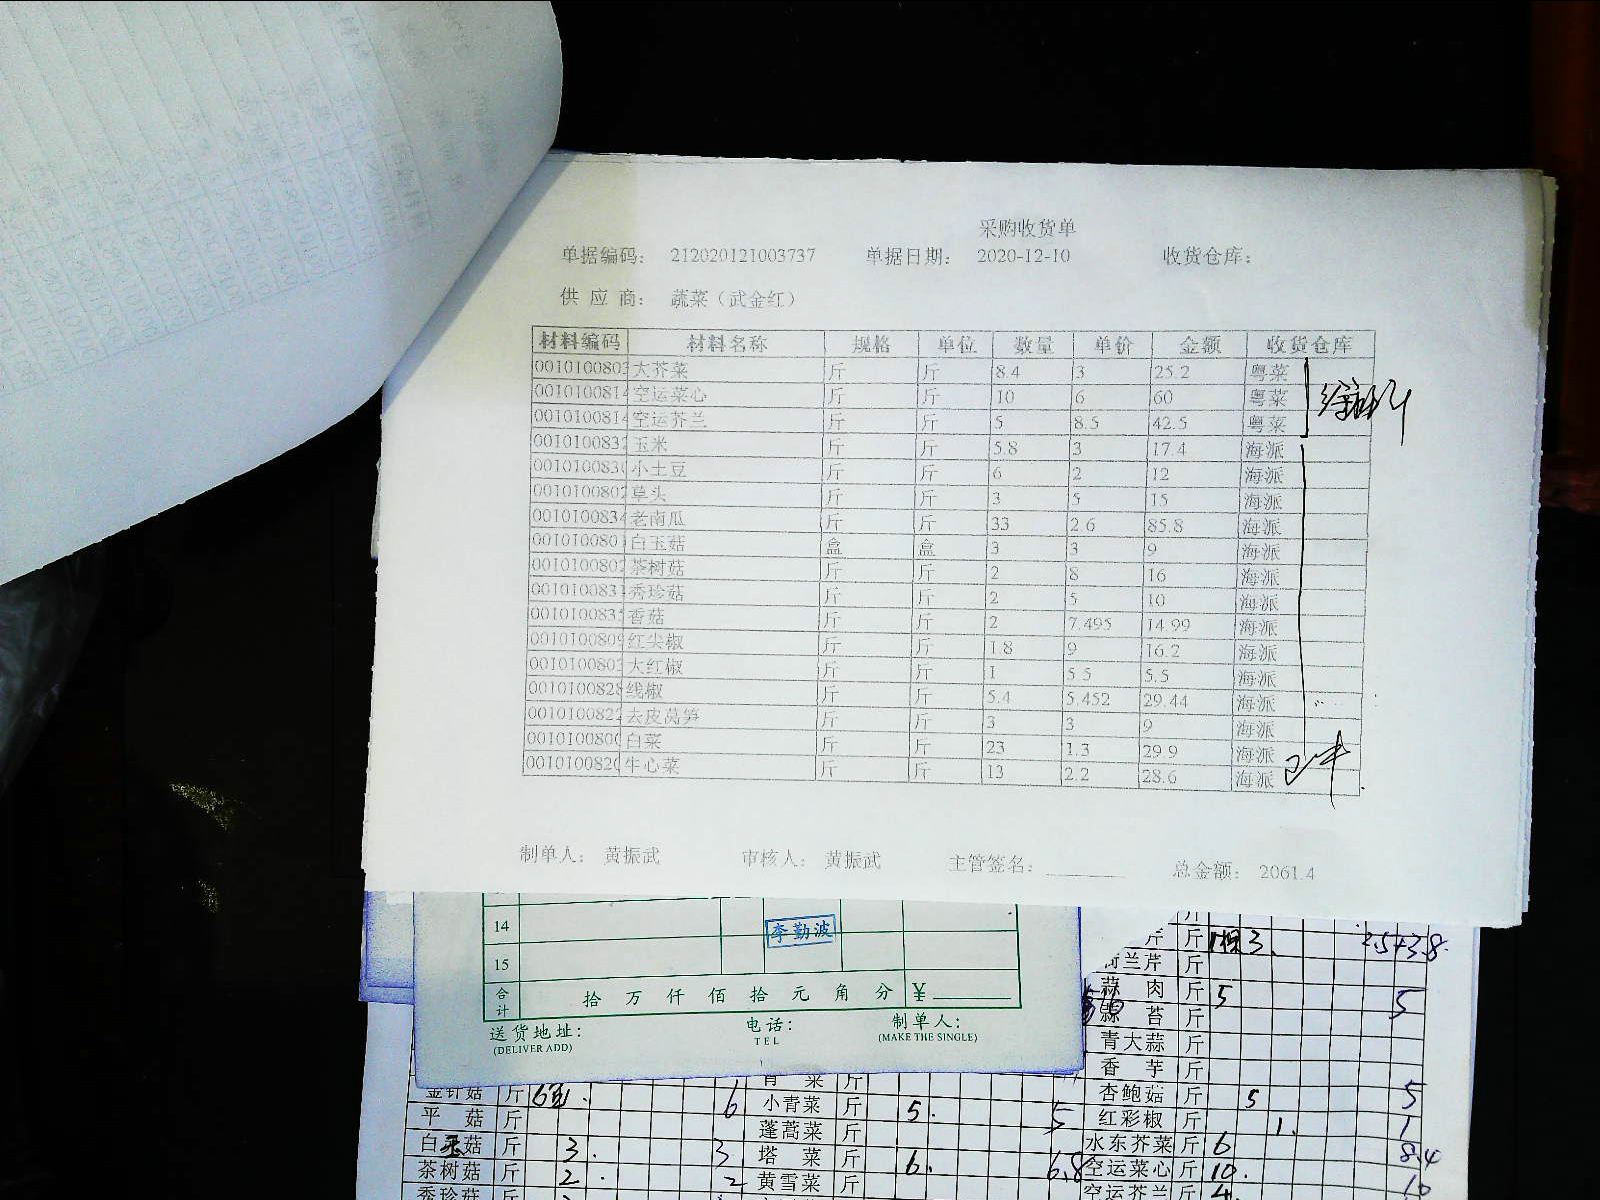 采购收货单
单据编码： 212020121003737 单据日期： 2020-12-10 收货仓库：
供 应 商： 蔬菜（武金红）
材料编码 材料名称 规格 单位 数量 单价 金额 收货仓库
0010100803 大芥菜 斤 斤 8.4 3 25.2 粤菜
0010100814 空运菜心 斤 斤 10 6 60 粤菜
0010100814 空运芥兰 斤 斤 5 8.5 42.5 粤菜
0010100832 玉米 斤 斤 5.8 3 17.4 海派
001010083 小土豆 斤 斤 6 2 12 海派
0010100802 草头 斤 斤 3 5 15 海派
0010100834 老南瓜 斤 斤 33 2.6 85.8 海派
001010080 白玉菇 盒 盒 3 3 9 海派
0010100802 茶树菇 斤 斤 2 8 16 海派
0010100831 秀珍菇 斤 斤 2 5 10 海派
001010083 香菇 斤 斤 2 7.495 14.99 海派
0010100809 红尖椒 斤 斤 1.8 9 16.2 海派
0010100803 大红椒 斤 斤 1 5.5 5.5 海派
0010100828 线椒 斤 斤 5.4 5.452 29.44 海派
0010100822 去皮莴笋 斤 斤 3 3 9 海派
0010100800 白菜 斤 斤 23 1.3 29.9 海派
0010100820 牛心菜 斤 斤 13 2.2 28.6 海派
制单人： 黄振武 审核人： 黄振武 主管签名： 总金额： 2061.4
14
李勤波
15
合计 拾 万 仟 佰 拾 元 角 分 ¥
送货地址： 电话： 制单人：
(DELIVER ADD) TEL (MAKE THE SINGLE)
斤 3. 2.5+3.8
荷兰芹 斤
蒜 肉 斤 5 5
苔 斤
青大蒜 斤
香 芋 斤
金针菇 斤 6 6 青 菜 斤 杏鲍菇 斤 5 5
平 菇 斤 小青菜 斤 5. 5 红彩椒 斤 1. 1
白玉菇 斤 3. 3 蓬蒿菜 斤 水东芥菜 斤 6 8.4
茶树菇 斤 2. 2 塔 菜 斤 6. 6.8 空运菜心 斤 10. 10
秀珍菇 斤 黄雪菜 斤 空运芥兰 斤 4.